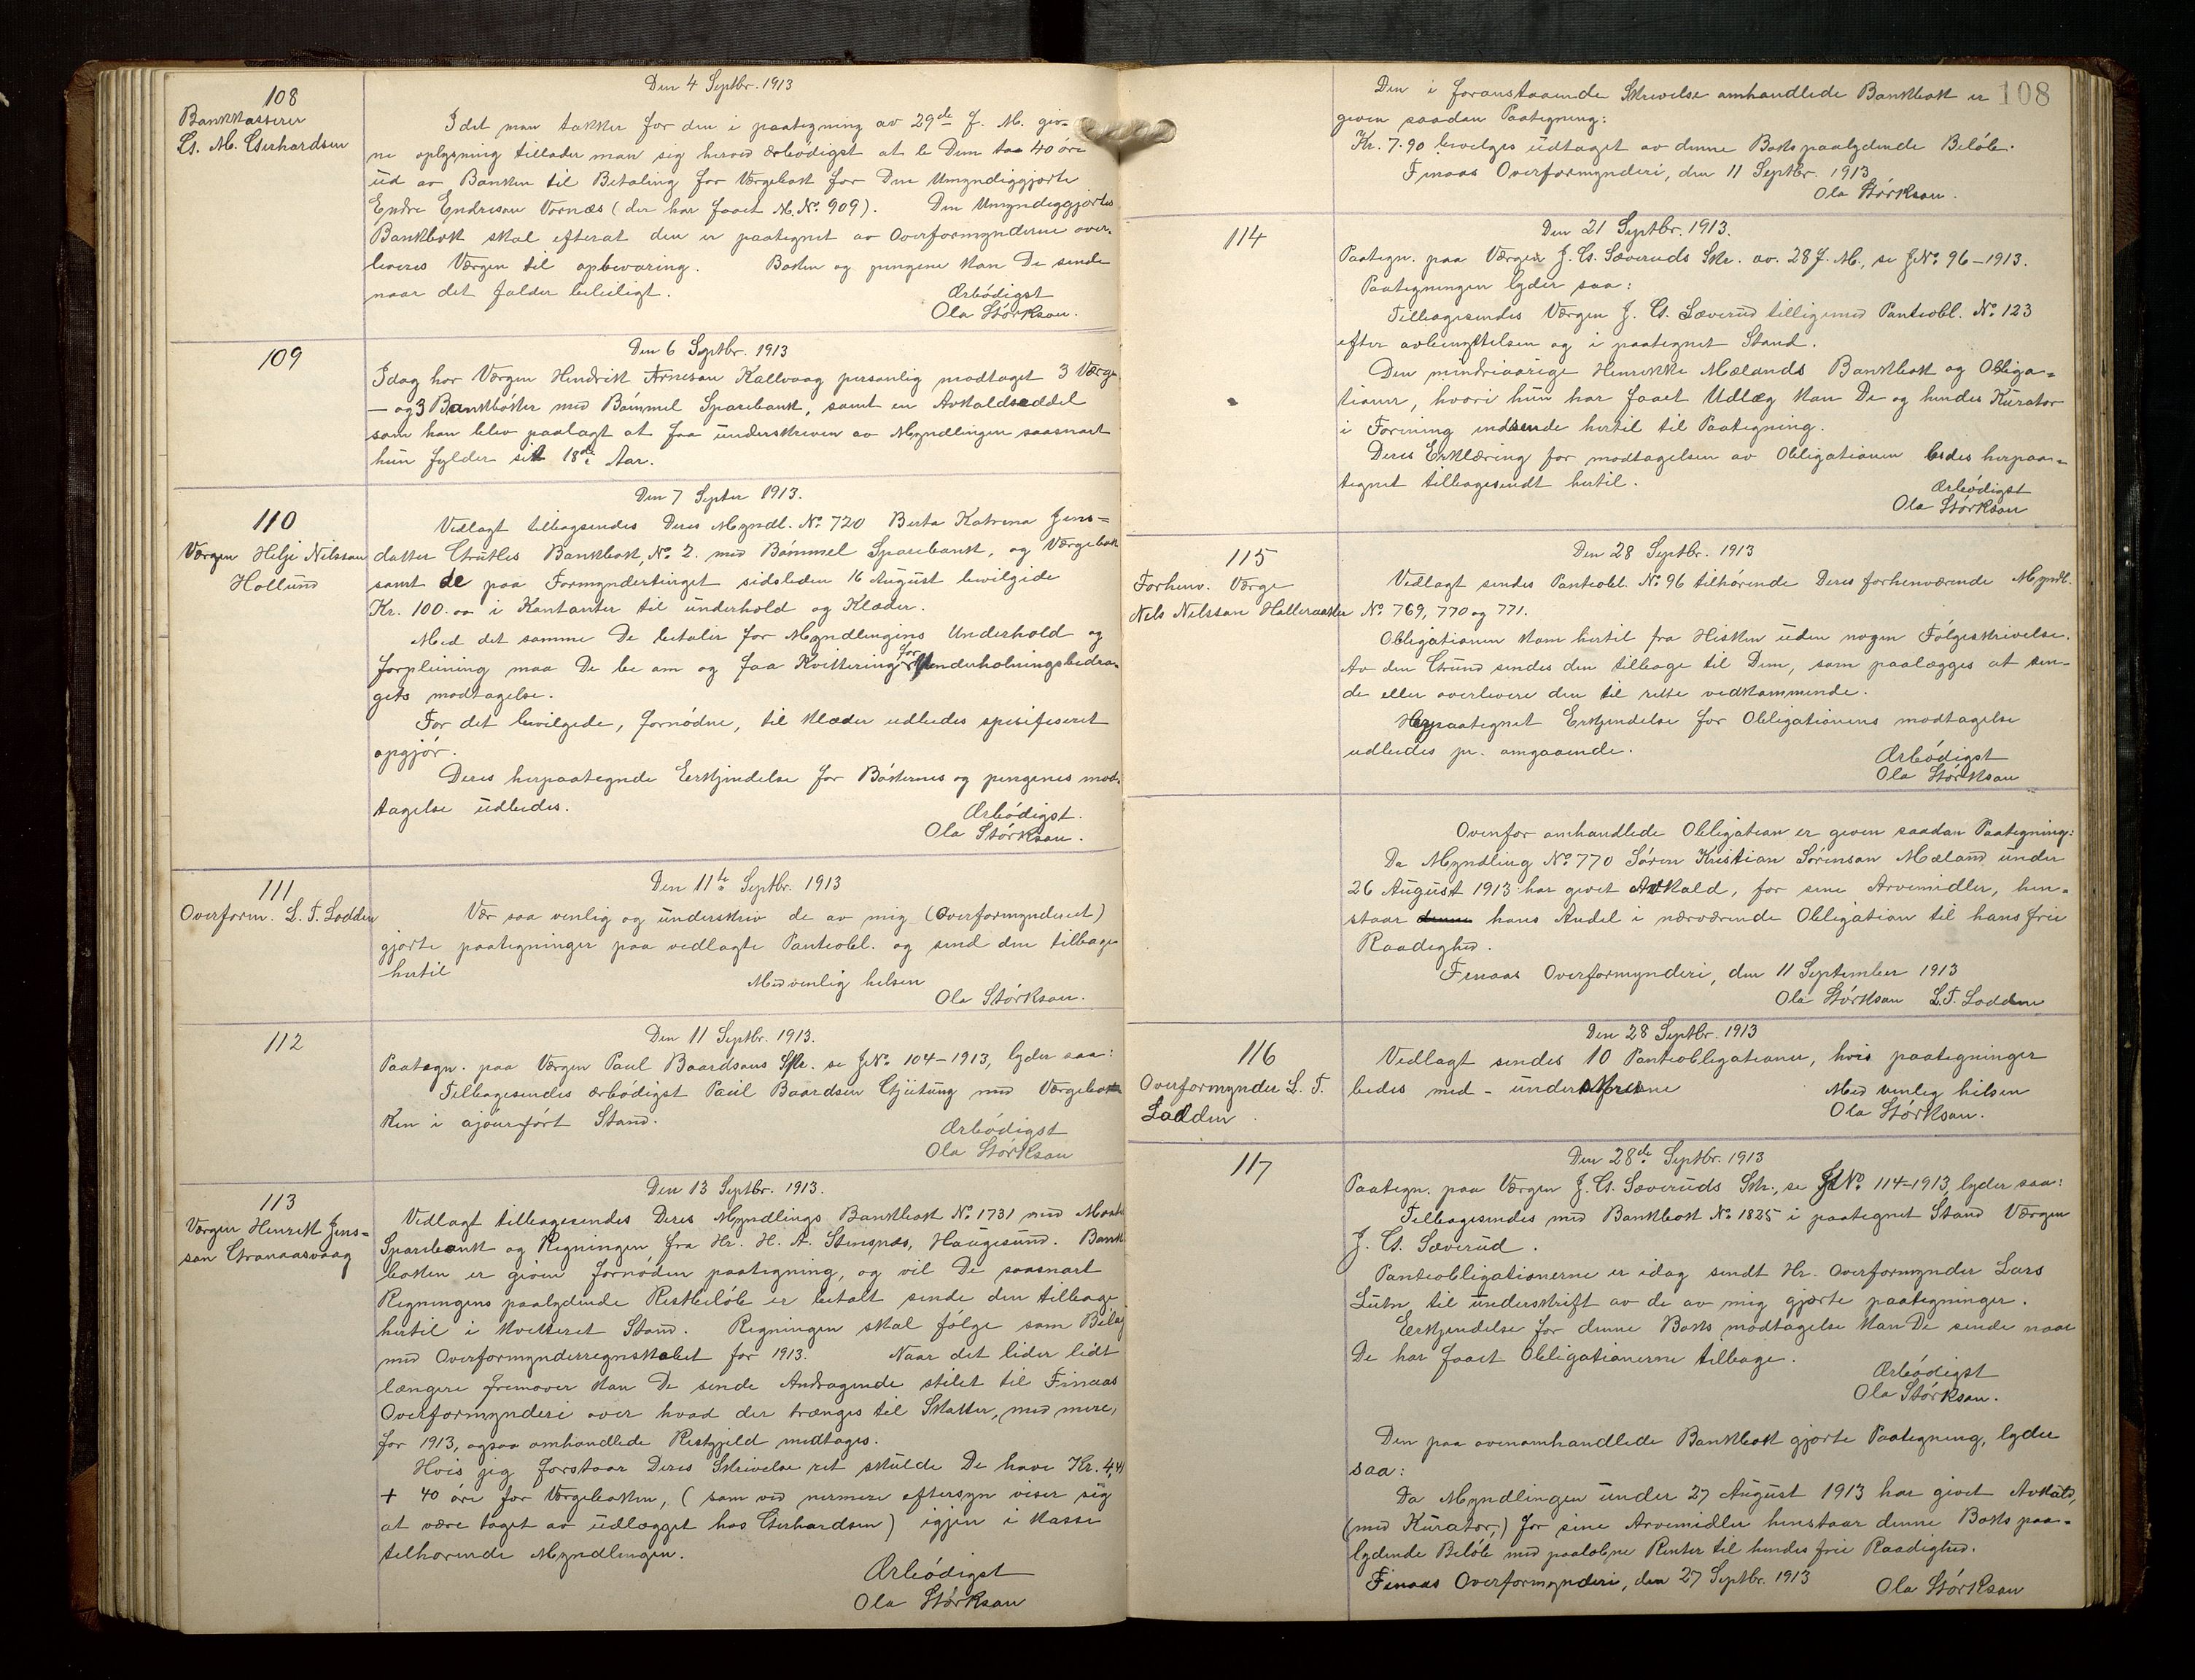 108
Bankkasserer
G. M. Gerhardsen
Den 4 Septbr. 1913
Idet man takker for den i paategning av 29de f. M. giv-
ne oplysning tillader man sig herved ærbödigst at be Dem taa 40 öre
ud av Banken til Betaling for Værgebok for Den Umyndiggjorte
Endre Endresøn Vornæs (der har faaet M. No. 909). Den Umyndiggjortes
Bankbok skal efterat den er paategnet av Overformynderne over-
leveres Værgen til opbevaring. Boken og pengene kan De sende
naar det falder beleiligt.
Ærbödigst
Ola Störkson.
109
Den 6 Septbr. 1913
Idag har Værgen Hendrik Arneson Kallvaag personlig modtaget 3 Værge
- og 3 Bankböker med Bömmel Sparebank, samt en Avkaldseddel
som han blev paalagt at faa underskreven av Myndlingen saasnart
hun fylder sit 18de Aar.
110
Værgen Helje Nilsson
Hollund
Den 7 Septer 1913.
Vedlagt tilbagsendes Deres Myndl. No. 720 Berta Katrina Jens-
datter Grutles Bankbok, No. 2. med Bömmel Sparebank, og Værgebok
samt de paa Formyndertinget sidsleden 16 August bevilgede
Kr. 100.00 i Kontanter til underhold og Klæder.
Med det samme De betaler for Myndlingens Underhold og
forpleining maa De be om og faa Kvittering for Underholningsbedra-
gets modtagelse.
For det bevilgede, fornödne, til klæder udbedes spesifiseret
opgjör.
Deres herpaategnde Erkjendelse for Bökernes og pengenes mod-
tagelse udbedes.
Ærbödigst.
Ola Störkson.
111
Overform. L. T. Lodden
Den 11te Septbr. 1913
Vær saa venlig og underskriv de av mig (Overformynderiet)
gjorte paategninger paa vedlagte Panteobl. og send den tilbage
hertil
Med venlig hilsen
Ola Störkson.
112
Den 11 Septbr. 1913.
Paategn. paa Værgen Paul Baardsons Skr. se JNo. 104-1913, lyder saa:
Tilbagesendes ærbödigst Paul Baardsen Gjutung med Værgebo-
ken i ajourfört Stand.
Ærbödigst
Ola Störkson
113
Værgen Henrik Jens-
son Granaasvaag
Den 13 Septbr. 1913.
Vedlagt tilbagesendes Deres Myndlings Bankbok No. 1731 med
Sparebank og Regningen fra Hr. H. A. Stensnæs, Haugesund. Bank
boken er given fornöden paategning, og vil De saasnart
Regningens paalydende Restbelöb er betalt sende den tilbage
hertil i kvitteret Stand. Regningen skal fölge som Bilag
med Overformynderregnskabet for 1913. Naar det lider lidt
længere fremover kan De sende Andragende stilet til Finaas
Overformynderi over hvad der trænges til Skatter, med mere,
for 1913, ogsaa omhandlede Restgjeld medtages.
Hvis jeg forstaar Deres Skrivelse ret skulde De have Kr. 4,41
+ 40 öre for Værgeboken, (som ved nermere eftersyn viser sig
at være taget av udlægget hos Gerhardsen) igjen i kasse
tilhorende Myndlingen.
Ærbödigst
Ola Störkson
108
Den i foranstaaende Skrivelse omhandlede Bankbok er
given saadan Paategning:
Kr. 7.90 bevilges udtaget av denne Boks paalydende Belöb.
Finaas Overformynderi, den 11 Septbr. 1913
Ola Störkson.
114
Den 21 Septbr. 1913.
Paategn. paa Værgen J. G. Sæveruds Skr. av. 28 f. M., se JNo. 96-1913.
Paategningen lyder saa:
Tilbagesendes Værgen J. G. Sæverud tilligemed Panteobl. No. 123
efter avbenyttelsen og i paategnet Stand.
Den mindreaarige Henrikke Mælands Bankbok og Obliga-
tioner, hvori hun har faaet Udlæg kan De og hendes Kurator
i Forening indsende hertil til Paategning.
Deres Erklæring for modtagelsen av Obligationen bedes herpaa-
tegnet tilbagesendt hertil.
Ærbödigst
Ola Störkson
115
Forhenv. Værge
Nils Nilsson Halleraaker
Den 28 Septbr. 1913
Vedlagt sendes Panteobl. No. 96 tilhörende Deres forhenværende Myndl.
No. 769, 770 og 771.
Obligationen kom hertil fra Hisken uden nogen Fölgeskrivelse.
Av den Grund sendes den tilbage til Dem, som paalægges at sen-
de eller overlevere den til rette vedkommende.
Herpaategnet Erkjendelse for Obligationens modtagelse
udbedes pr. omgaaende.
Ærbödigst
Ola Störkson
Ovenfor omhandlede Obligation er given saadan Paategning:
Da Myndling No. 770 Sören Kristian Sörenson Mæland under
26 August 1913 har givet Avkald, for sine Arvemidler, hen-
staar hans Andel i nærværende Obligation til hans frie
Raadighed.
Finaas Overformynderi, den 11 September 1913
Ola Störkson L. T. Lodden
116
Overformynder L. T.
Lodden
Den 28 Septbr. 1913
Vedlagt sendes 10 Panteobligationer, hvis paategninger
bedes med-underskrevne
Med venlig hilsen
Ola Störkson.
117
Den 28de Septbr. 1913
Paategn. paa Værgen J. G. Sæveruds Skr., se JNo. 114-1913, lyder saa:
Tilbagesendes med Bankbok No. 1825 i paategnet Stand Værgen
J. G. Sæverud.
Panteobligationerne er idag sendt Hr. Overformynder Lars
til underskrift av de av mig gjorte paategninger.
Erkjendelse for denne Boks modtagelse kan De sende naar
De har faaet Obligationerne tilbage.
Ærbödigst
Ola Störkson.
Den paa ovenomhandlede Bankbok gjorte Paategning, lyder
saa:
Da Myndlingen under 27 August 1913 har givet Avkald,
(med Kurator,) for sine Arvemidler henstaar denne Boks paa-
lydende Belöb med paalöpne Renter til hendes frie Raadighed.
Finaas Overformynderi, den 27 Septbr. 1913
Ola Störkson